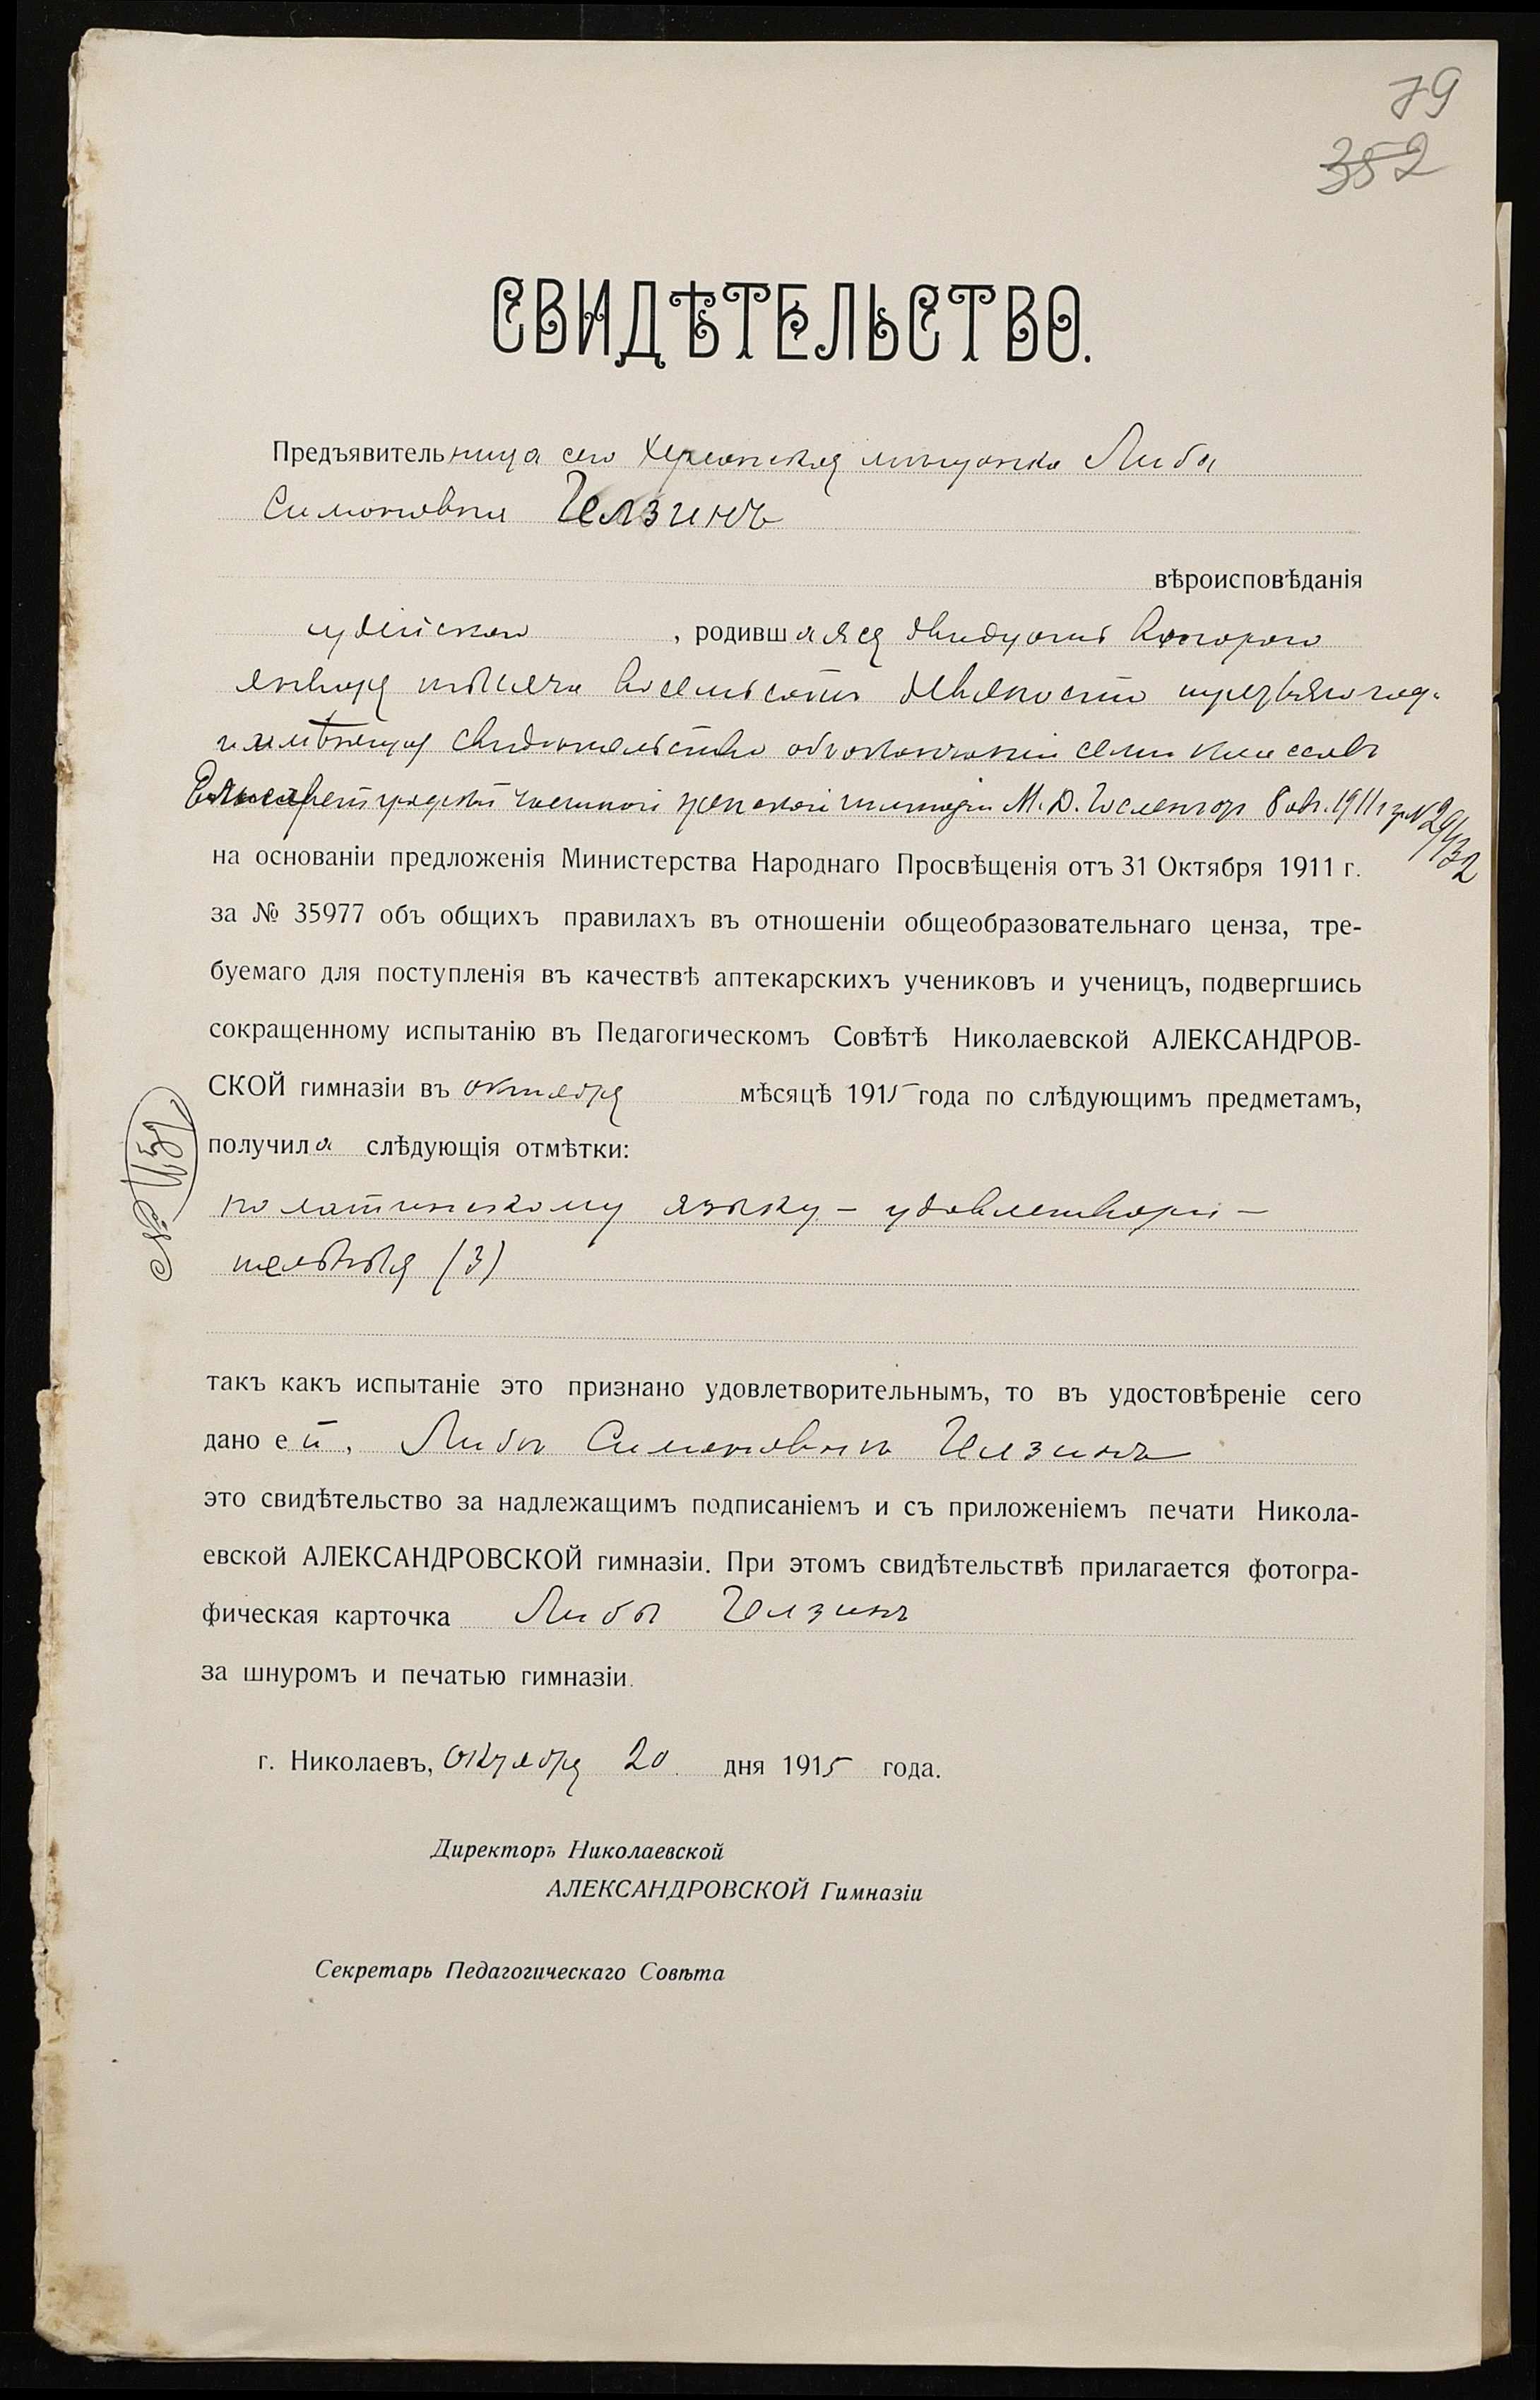 79
352
СВИДѢТЕЛЬСТВО.
Предъявительница сего Херсонская мѣщанка Либа
Симоновна Гелзинъ
вѣроисповѣданія
іудейскаго, родившаяся двадцать второго
января тысяча восемьсотъ девяносто третьяго года
и имѣющая свидѣтельство объ окончаніи семи классовъ
Елисаветградской частной женской гимназіи М. Д. 8 окт. 1911 г. за № 29/132
на основаніи предложенія Министерства Народнаго Просвѣщенія отъ 31 Октября 1911 г.
за № 35977 объ общихъ правилахъ въ отношеніи общеобразовательнаго ценза, тре-
буемаго для поступленія въ качествѣ аптекарскихъ учениковъ и ученицъ, подвергшись
сокращенному испытанію въ Педагогическомъ Совѣтѣ Николаевской АЛЕКСАНДРОВ-
СКОЙ гимназіи въ октября мѣсяцѣ 1915 года по слѣдующимъ предметамъ,
получила слѣдующія отмѣтки:
по латинскому языку – удовлетвори-
тельныя (3)
такъ какъ испытаніе это признано удовлетворительнымъ, то въ удостовѣреніе сего
дано ей, Либѣ Симоновнѣ Гелзинъ
это свидѣтельство за надлежащимъ подписаніемъ и съ приложеніемъ печати Никола-
евской АЛЕКСАНДРОВСКОЙ гимназіи. При этомъ свидѣтельствѣ прилагается фотогра-
фическая карточка Либы Гелзинъ
за шнуромъ и печатью гимназіи.
г. Николаевъ, Октября 20 дня 1915 года.
Директоръ Николаевской
АЛЕКСАНДРОВСКОЙ Гимназіи
Секретарь Педагогическаго Совѣта